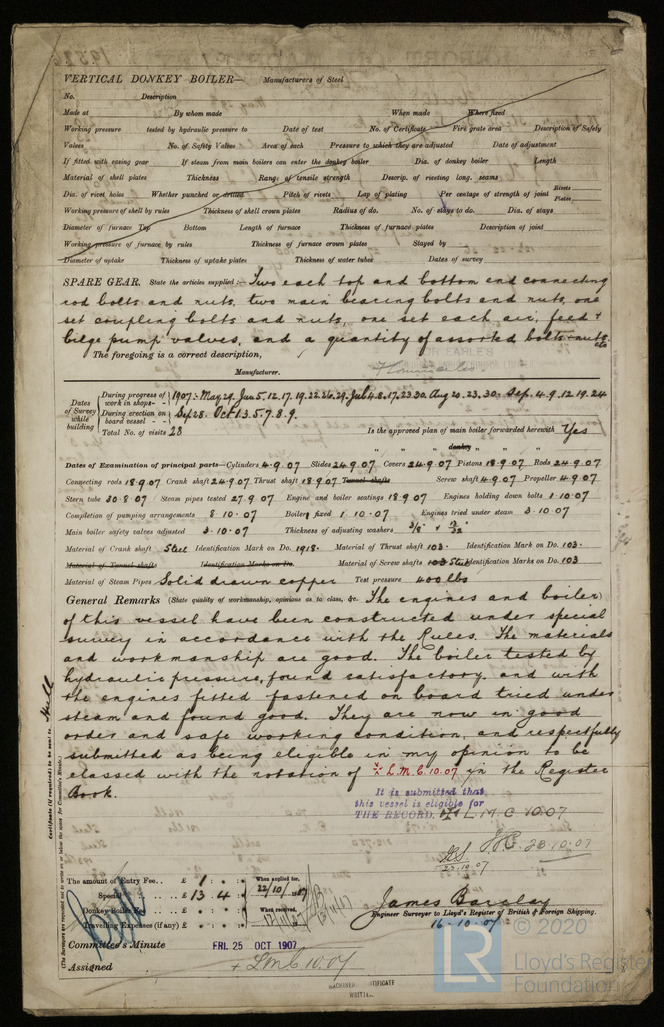 VERTICAL DONKEY BOILER— Manufacturers of Steel
No. Description
Made at By whom made When made Where fixed
Working pressure tested by hydraulic pressure to Date of test No. of Certificate Fire grate area Description of Safety
Valves No. of Safety Valves Area of each Pressure to which they are adjusted Date of adjustment
If fitted with easing gear If steam from main boilers can enter the donkey boiler Dia. of donkey boiler Length
Material of shell plates Thickness Range of tensile strength Descrip. of riveting long. seams
Dia. of rivet holes Whether punched or drilled Pitch of rivets Lap of plating Per centage of strength of joint Rivets Plates
Working pressure of shell by rules Thickness of shell crown plates Radius of do. No. of stays to do. Dia. of stays
Diameter of furnace Top Bottom Length of furnace Thickness of furnace plates Description of joint
Working pressure of furnace by rules Thickness of furnace crown plates Stayed by
Diameter of uptake Thickness of uptake plates Thickness of water tubes Dates of survey
SPARE GEAR. State the articles supplied:— Two each top and bottom end connecting
rod bolts and nuts, two main bearing bolts and nuts, one
set coupling bolts and nuts, one set each air, feed &
bilge pump valves, and a quantity of assorted bolts & nuts etc
The foregoing is a correct description,
Manufacturer.
Dates of Survey while building
During progress of work in shops - - 1907:- May 29. Jun 5.12.17.19.22.26.29. Jul 4.8.17.23.30. Aug 20.23.30. Sep. 4.9.12.19.24
During erection on board vessel - - Sep 28. Oct 1.3.5.7.8.9.
Total No. of visits 28 Is the approved plan of main boiler forwarded herewith Yes
" " donkey " " "
Dates of Examination of principal parts—Cylinders 4.9.07 Slides 24.9.07 Covers 24.9.07 Pistons 18.9.07 Rods 24.9.07
Connecting rods 18.9.07 Crank shaft 24.9.07 Thrust shaft 18.9.07 Tunnel shafts Screw shaft 4.9.07 Propeller 4.9.07
Stern tube 30.8.07 Steam pipes tested 27.9.07 Engine and boiler seatings 18.9.07 Engines holding down bolts 1.10.07
Completion of pumping arrangements 8.10.07 Boilers fixed 1.10.07 Engines tried under steam 3.10.07
Main boiler safety valves adjusted 3.10.07 Thickness of adjusting washers 3/8" & 9/32"
Material of Crank shaft Steel Identification Mark on Do. 1918. Material of Thrust shaft 103. Identification Mark on Do. 103.
Material of Tunnel shafts Identification Marks on Do. Material of Screw shafts 103 Steel Identification Marks on Do. 103
Material of Steam Pipes Solid drawn copper Test pressure 400 lbs
General Remarks (State quality of workmanship, opinions as to class, &c. The engines and boiler
of this vessel have been constructed under special
survey in accordance with the Rules. The materials
and workmanship are good. The boiler tested by
hydraulic pressure, found satisfactory. and with
the engines fitted & fastened on board tried under
steam and found good. They are now in good
order and safe working condition, and respectfully
submitted as being eligible in my opinion to be
classed with the notation of L.M.C. 10.07 in the Register
Book.
It is submitted that
this vessel is eligible for
THE RECORD. + L M C 10.07
23.10.07
23.10.07
Certificate (if required) to be sent to Hull
(The Surveyors are requested not to write on or below the space for Committee's Minute.)
The amount of Entry Fee.. £ 1 : : When applied for,
Special .. .. £ 13 . 4 : 22/10/1907
Donkey Boiler Fee .. .. £ : : When received,
Travelling Expenses (if any) £ : :
James Barclay
Engineer Surveyor to Lloyd's Register of British & Foreign Shipping.
16.10.07
Committee's Minute FRI. 25 OCT 1907
Assigned + L.M.C. 10.07
© 2020
LR
Lloyd's Register
Foundation